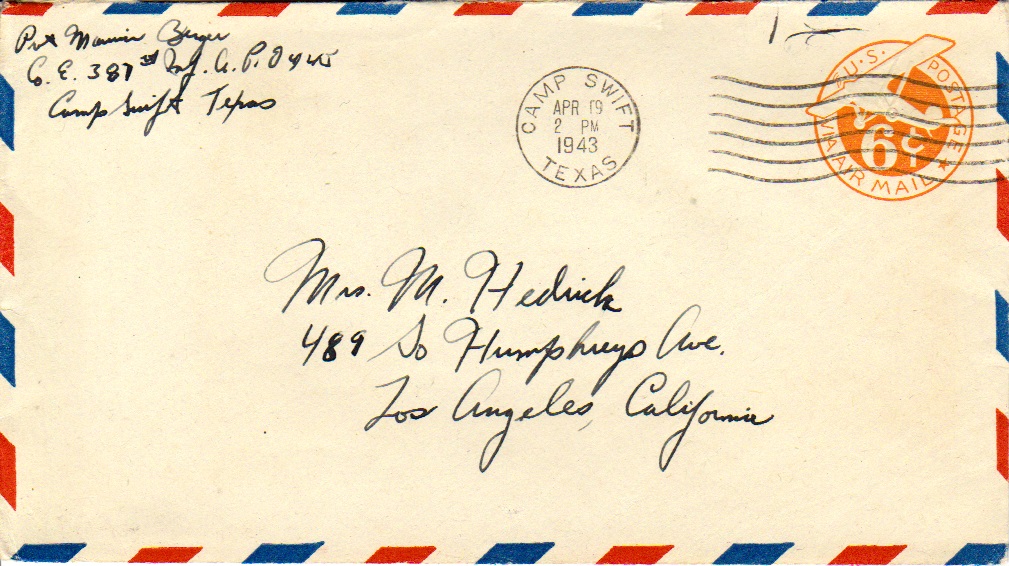 Pvt Mannie Berger
Co. E. 387th Inf. A.P.O 445
Camp Swift Texas
CAMP SWIFT
APR 19
2 PM
1943
TEXAS
U.S. POSTAGE
6¢
VIA AIR MAIL
Mrs. M. Hedrick
489 So Humphreys Ave.
Los Angeles, California